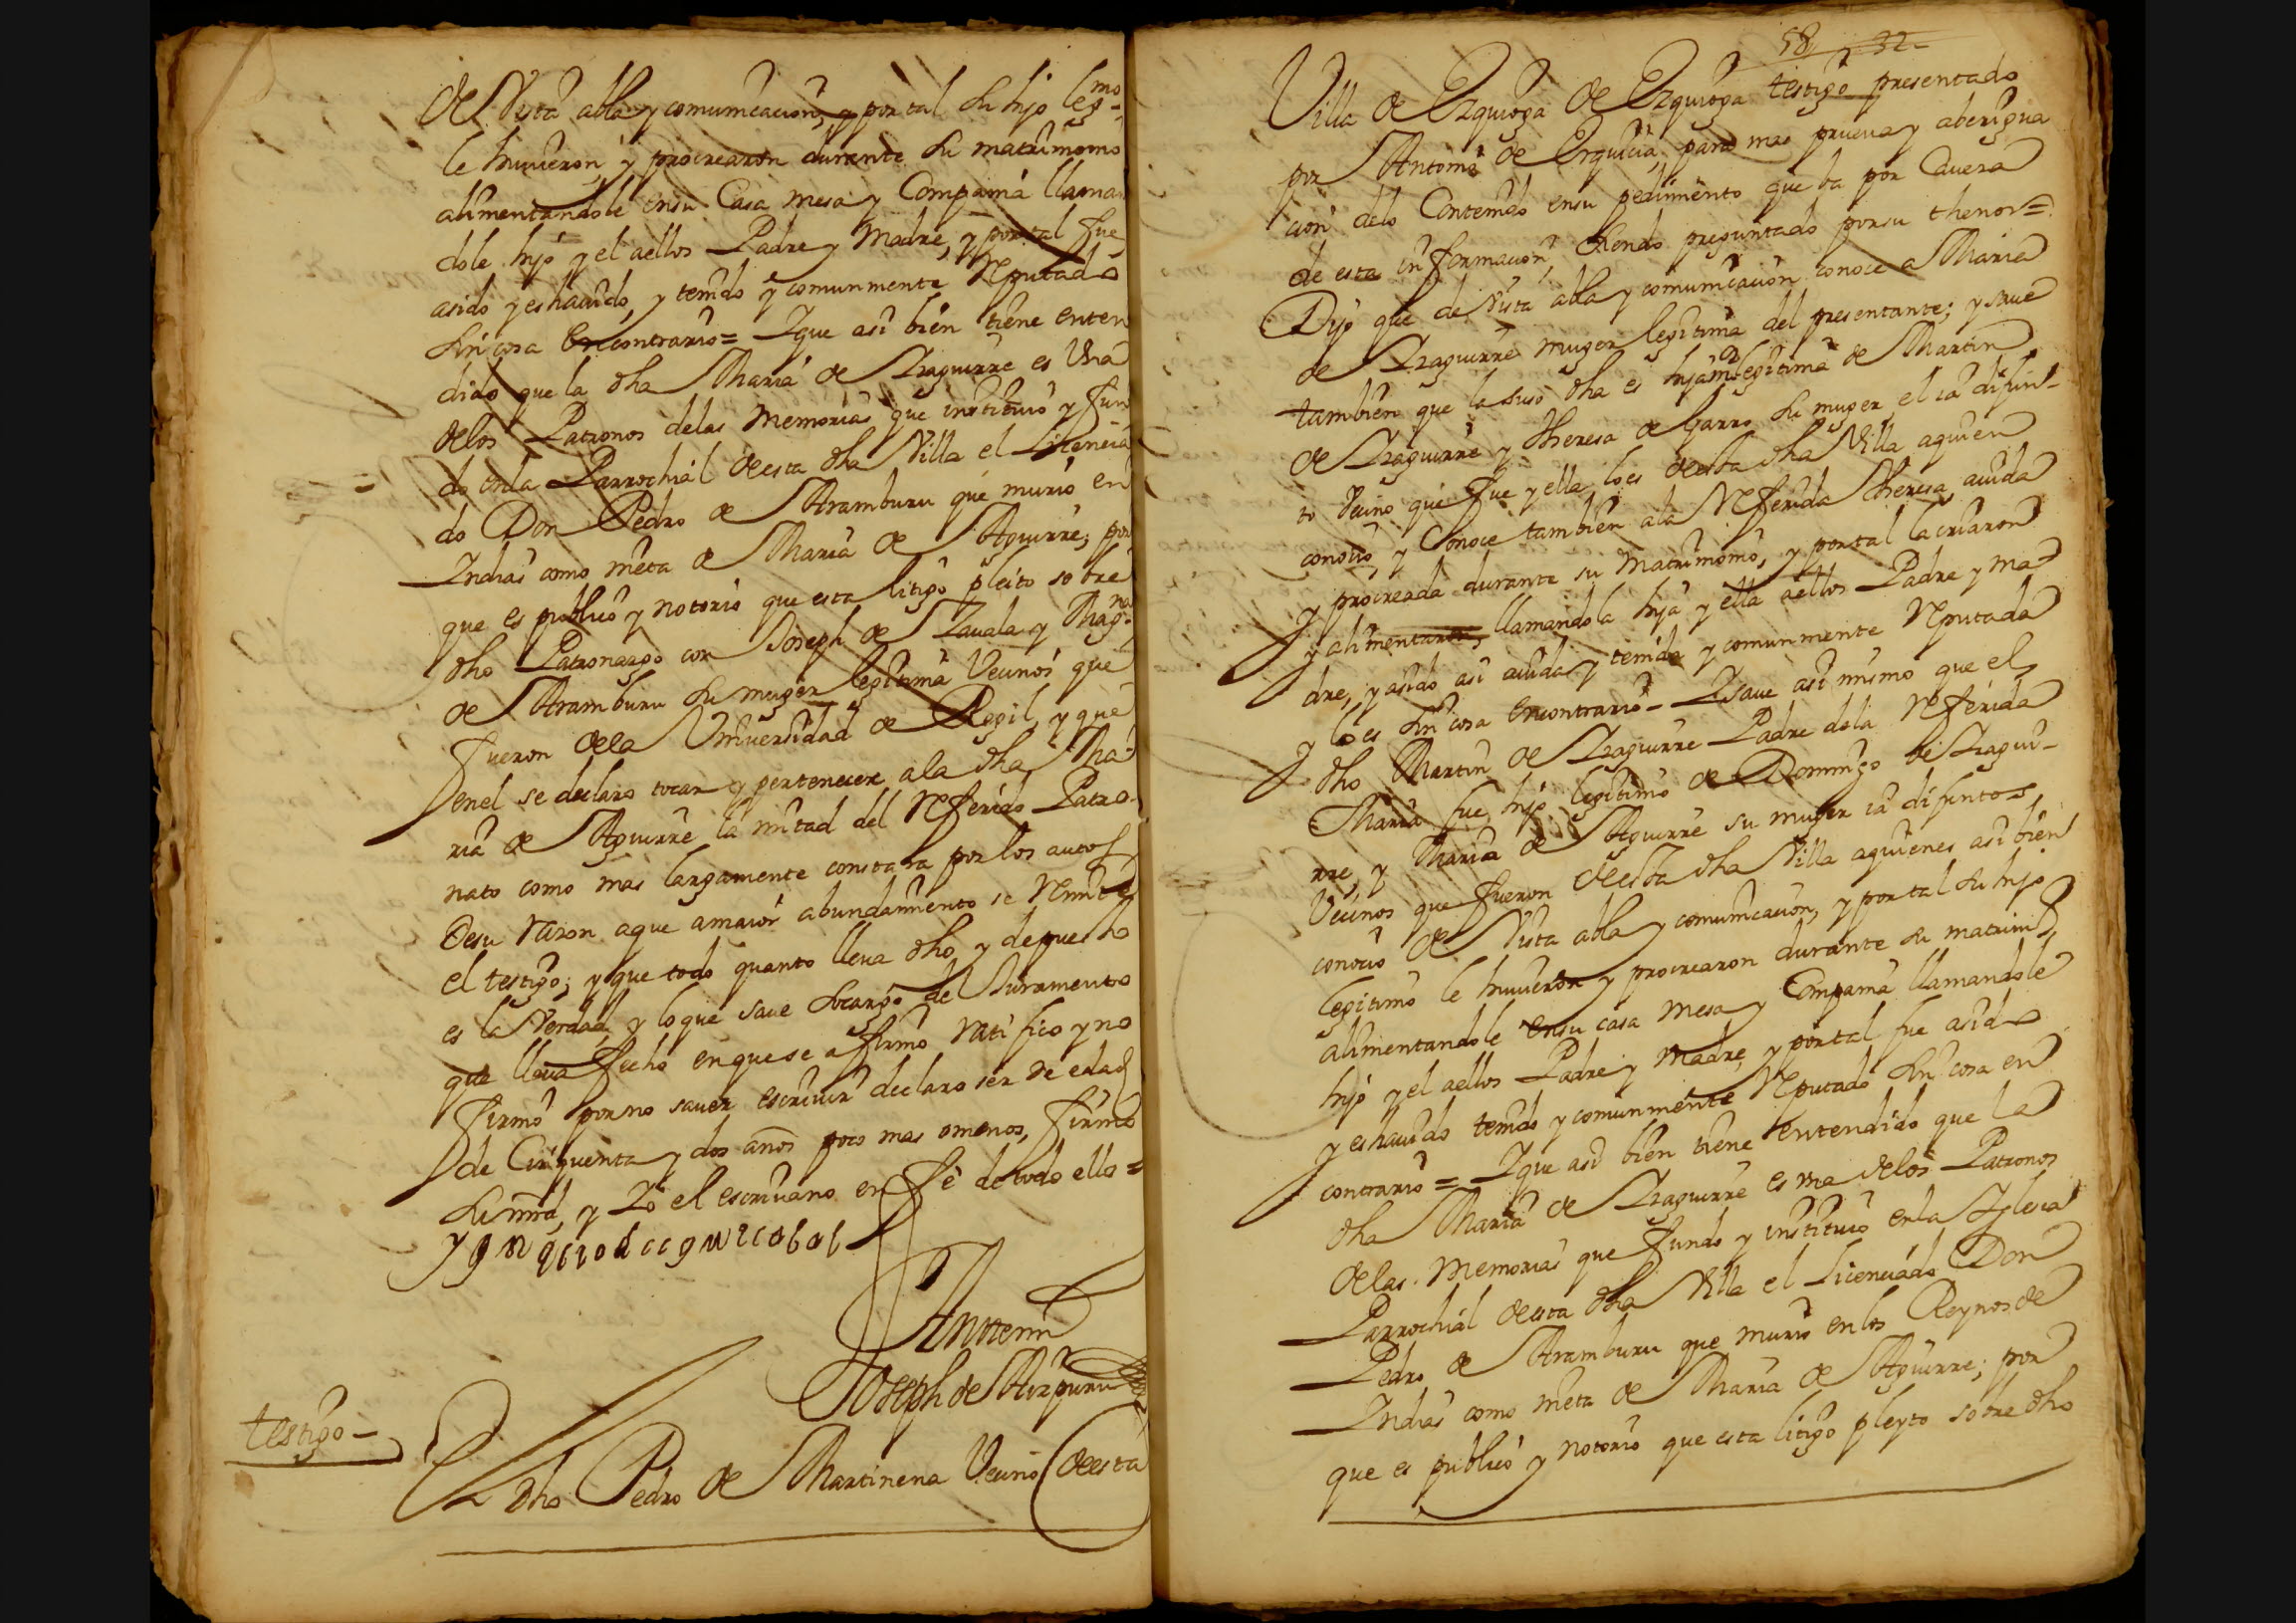 de Vista abla y comunicacion, y por tal su hijo legmo
le huuieron, y procrearon durante su matrimonio
alimentandole en su Casa mesa y Compania llaman
dole hijo y el a ellos Padre y Madre, y por tal fue
asido y es hauido, y tenido y comunmente Reputado
sin cosa en contrario = Y que asi bien tiene enten
dido que la dha Maria de Yzaguirre es Vna
de los Patronos de las Memorias que instituio y fun
do en la Parrochial de esta dha Villa el Licencia
do Don Pedro de Aramburu que murio en
Indias como nieta de Maria de Aguirre, por
que es publico y notorio que esta litigo pleito sobre
dho Patronazgo con Joseph de Zauala y Magna
de Aramburu su muger legitima Vecinos que
fueron de la Vniuersidad de Regil, y que
en el se declaro tocar y pertenecer a la dha Ma
ria de Aguirre la mitad del Referido Patro
nato como mas largamente constara por los autos
de su razon a que a maior abundamiento se Remite
el testigo; y que todo quanto lleua dho y depuesto
es la Verdad, y lo que saue so cargo del Juramento
que lleua fecho en que se afirmo ratifico y no
firmo por no sauer escriuir declaro ser de edad
de Cinquenta y dos años poco mas o menos, firmo
su mrd, y Yo el escriuano en fe de todo ello =
Antemi
Joseph de Aizpuru
testigo -
El dho Pedro de Martinena Vecino de esta
58 32
Villa de Ezquioga de Ezquioga testigo presentado
por Antonio de Erquicia, para mas prueua y aberigua
cion de lo Contenido en su pedimiento que ba por Cauera
de esta informacion, siendo preguntado por su thenor =
Dijo que de Vista abla y comunicacion conoce a Maria
de Yzaguirre muger legitima del presentante; y saue
tambien que la suso dha es hija legitima de Martin
de Yzaguirre y Theresa de Garro su muger, el ia difun-
to Vecino que fue y ella lo es de esta dha Villa a quien
conocio, y Conoce tambien a la Referida Theresa, auida
y procreada durante su Matrimonio, y por tal la criaron
y alimentaron, llamandola hija y ella a ellos Padre y Ma-
dre, y asido asi auida y tenida y comunmente Reputada
y lo es sin cosa en contrario - Y saue asi mismo que el
dho Martin de Yzaguirre Padre de la Referida
Maria fue hijo legitimo de Domingo de Yzagui-
rre, y Maria de Aguirre su muger ia difuntos,
Vecinos que fueron de esta dha Villa a quienes asi bien
conocio de Vista abla y comunicacion, y por tal su hijo
legitimo le huuieron y procrearon durante su matrimo
alimentandole en su casa mesa y Compania llamandole
hijo y el a ellos Padre y Madre, y por tal fue asido
y es hauido tenido y comunmente Reputado sin cosa en
contrario = Y que asi bien tiene entendido que la
dha Maria de Yzaguirre es vna de los Patronos
de las Memorias que fundo y instituio en la Yglesia
Parrochial de esta dha Villa el Licenciado Don
Pedro de Aramburu que murio en los Reynos de
Indias como nieta de Maria de Aguirre; por
que es publico y notorio que esta litigo pleyto sobre dho